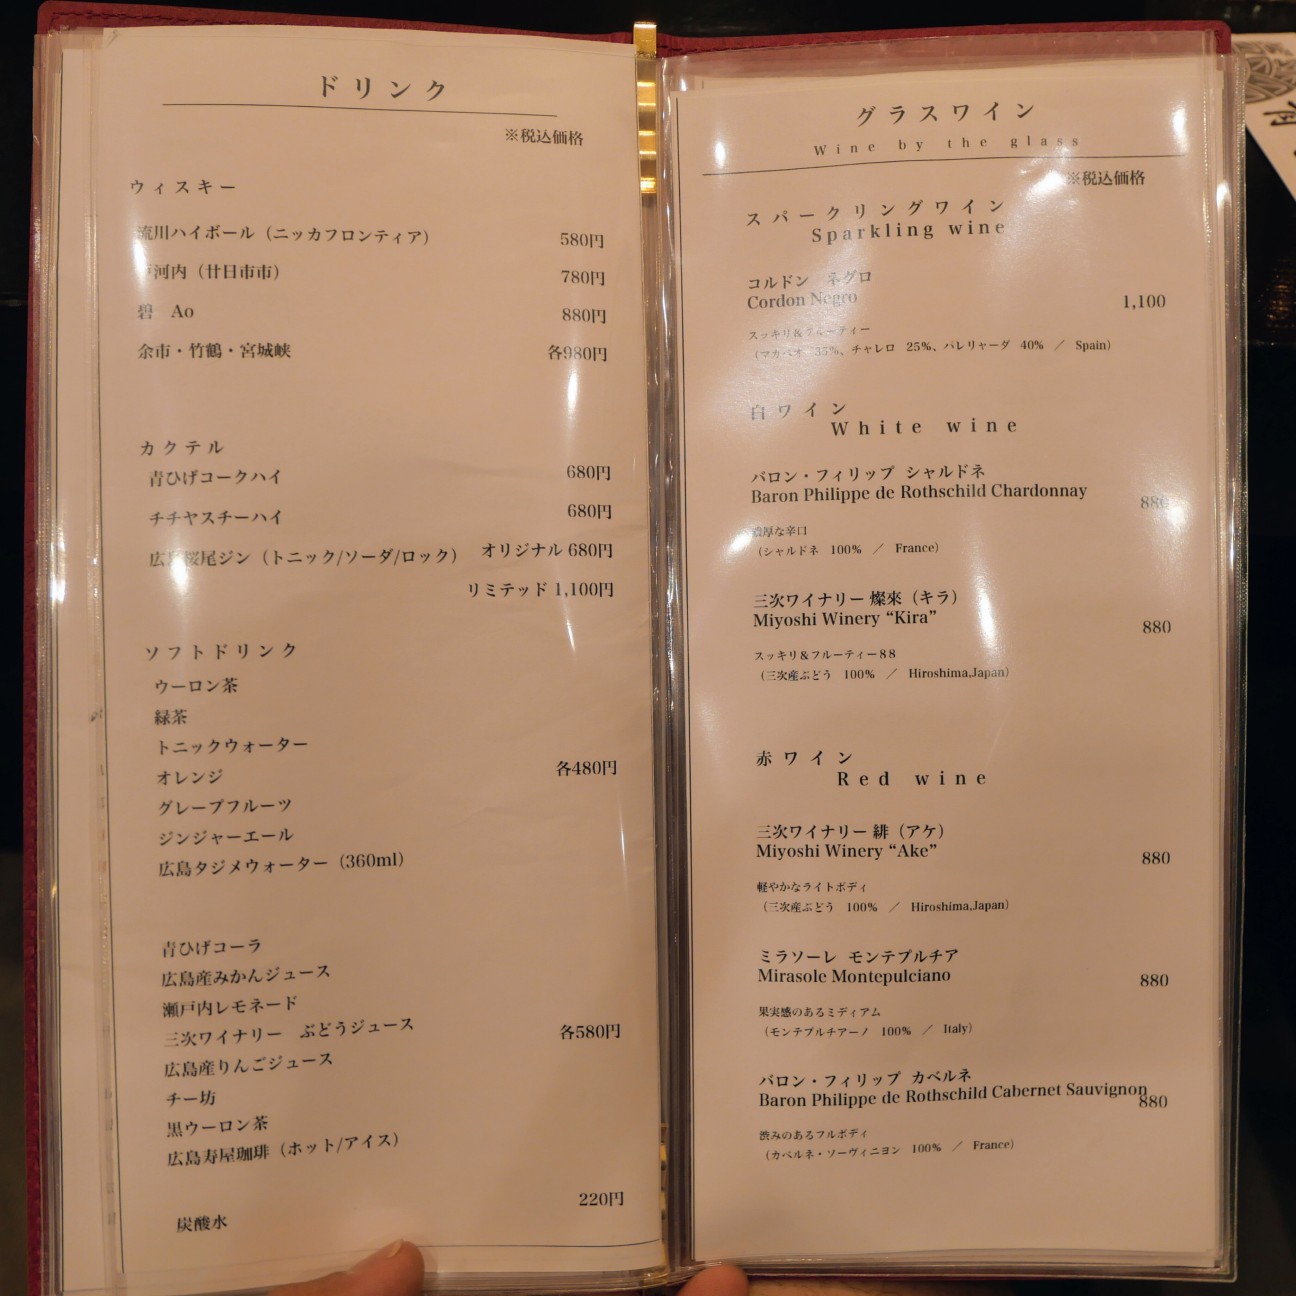 ドリンク
※税込価格
ウィスキー
流川ハイボール（ニッカフロンティア） 580円
戸河内（廿日市市） 780円
碧 Ao 880円
余市・竹鶴・宮城峡 各980円
カクテル
青ひげコークハイ 680円
チチヤスチーハイ 680円
広島桜尾ジン（トニック/ソーダ/ロック） オリジナル 680円
リミテッド 1,100円
ソフトドリンク
ウーロン茶
緑茶
トニックウォーター
オレンジ 各480円
グレープフルーツ
ジンジャーエール
広島タジメウォーター（360ml）
青ひげコーラ
広島産みかんジュース
瀬戸内レモネード
三次ワイナリー ぶどうジュース 各580円
広島産りんごジュース
チー坊
黒ウーロン茶
広島寿屋珈琲（ホット/アイス）
220円
炭酸水
グラスワイン
Wine by the glass
※税込価格
スパークリングワイン
Sparkling wine
コルドン ネグロ
Cordon Negro 1,100
スッキリ&フルーティー
（マカベオ 35%、チャレロ 25%、パレリャーダ 40% ／ Spain）
白ワイン
White wine
バロン・フィリップ シャルドネ
Baron Philippe de Rothschild Chardonnay 880
濃厚な辛口
（シャルドネ 100% ／ France）
三次ワイナリー 燦來（キラ）
Miyoshi Winery “Kira” 880
スッキリ&フルーティー88
（三次産ぶどう 100% ／ Hiroshima,Japan）
赤ワイン
Red wine
三次ワイナリー 緋（アケ）
Miyoshi Winery “Ake” 880
軽やかなライトボディ
（三次産ぶどう 100% ／ Hiroshima,Japan）
ミラソーレ モンテプルチア
Mirasole Montepulciano 880
果実感のあるミディアム
（モンテプルチアーノ 100% ／ Italy）
バロン・フィリップ カベルネ
Baron Philippe de Rothschild Cabernet Sauvignon 880
渋みのあるフルボディ
（カベルネ・ソーヴィニヨン 100% ／ France）